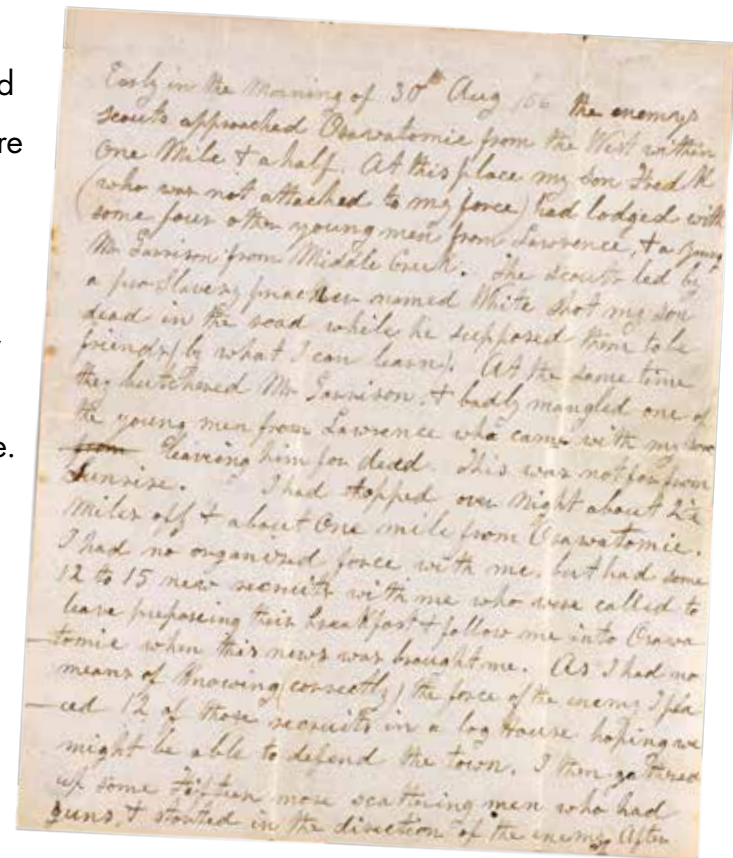 d
re
e.
Early in the Morning of 30th Aug /56 the enemys
scouts approached Osawatomie from the West within
One Mile & a half. At this place my son Fred K
(who was not attached to my force) had lodged with
some four other young men from Lawrence, & a young
Mr Garrison from Middle Creek. The scouts led by
a pro Slavery preacher named White shot my son
dead in the road while he supposed them to be
friends (by what I can learn). At the same time
they butchered Mr Garrison, & badly mangled one of
the young men from Lawrence who came with my son
from leaving him for dead. This was not far from
Sunrise. I had stopped over Night about 2½
miles off & about One mile from Osawatomie.
I had no organized force with me, but had some
12 to 15 new recruits with me who were called to
leave preparing their breakfast & follow me into Osawa
-tomie when this news was brought me. As I had no
means of Knowing (correctly) the force of the enemy I pla
-ced 12 of those recruits in a log House hoping we
might be able to defend the town. I then gathered
up some Fifteen more scattering men who had
guns, & started in the direction of the enemy After